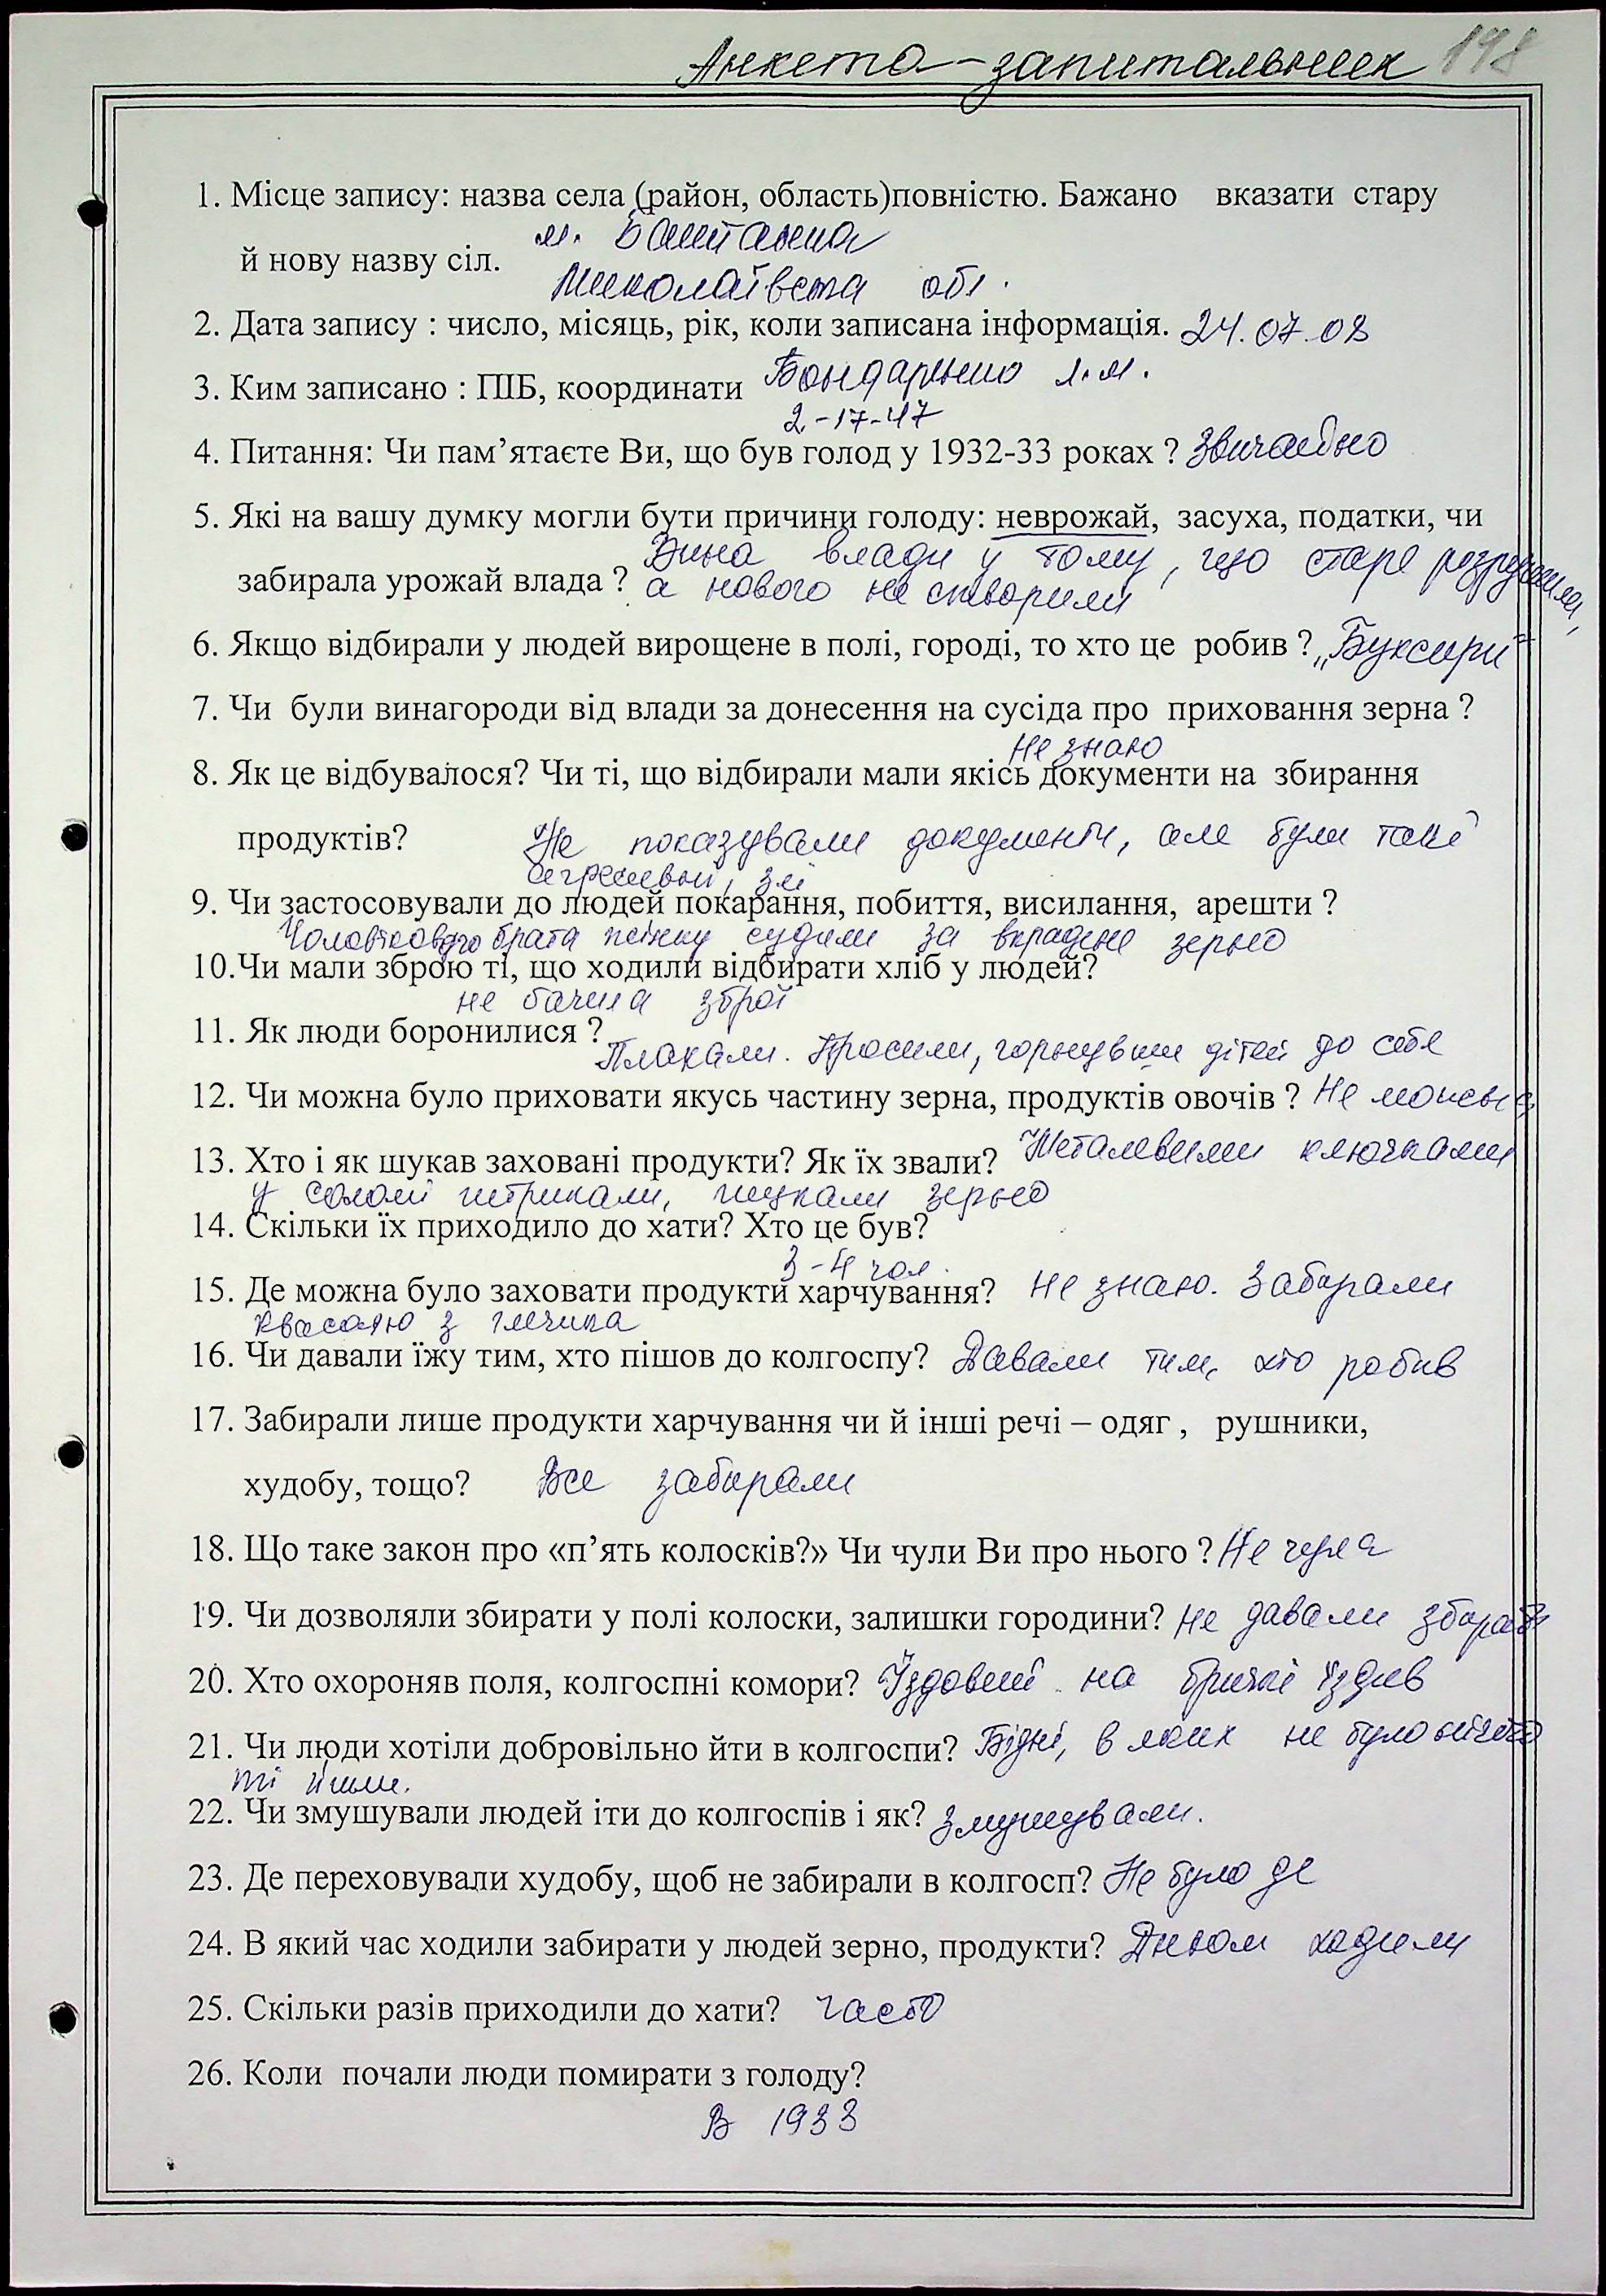 Анкета-запитальник 198
1. Місце запису: назва села (район, область)повністю. Бажано вказати стару
м. Баштанка
й нову назву сіл.
Миколаївська обл.
2. Дата запису : число, місяць, рік, коли записана інформація. 24.07.08
3. Ким записано : ПІБ, координати Бондаренко Л.М.
2-17-47
4. Питання: Чи пам’ятаєте Ви, що був голод у 1932-33 роках ? Звичайно
5. Які на вашу думку могли бути причини голоду: неврожай, засуха, податки, чи
Вина влади у тому, що старе розрушили,
забирала урожай влада ? а нового не створили
6. Якщо відбирали у людей вирощене в полі, городі, то хто це робив ? „Буксири"
7. Чи були винагороди від влади за донесення на сусіда про приховання зерна ?
Не знаю
8. Як це відбувалося? Чи ті, що відбирали мали якісь документи на збирання
продуктів? Не показували документи, але були такі
агресивні, злі
9. Чи застосовували до людей покарання, побиття, висилання, арешти ?
Чоловікового брата жінку судили за вкрадене зерно
10.Чи мали зброю ті, що ходили відбирати хліб у людей?
не бачила зброї
11. Як люди боронилися ?
Плакали. Просили, горнувши дітей до себе
12. Чи можна було приховати якусь частину зерна, продуктів овочів ? Не можна
13. Хто і як шукав заховані продукти? Як їх звали? Металевими ключками
у соломі штрикали, шукали зерно
14. Скільки їх приходило до хати? Хто це був?
3-4 чол.
15. Де можна було заховати продукти харчування? Не знаю. Забирали
квасолю з глечика
16. Чи давали їжу тим, хто пішов до колгоспу? Давали тим, хто робив
17. Забирали лише продукти харчування чи й інші речі – одяг , рушники,
худобу, тощо? Все забирали
18. Що таке закон про «п’ять колосків?» Чи чули Ви про нього ? Не чула
19. Чи дозволяли збирати у полі колоски, залишки городини? Не давали збирати
20. Хто охороняв поля, колгоспні комори? Їздовий на бричці їздив
21. Чи люди хотіли добровільно йти в колгоспи? Бідні, в яких не було нічого
ті йшли.
22. Чи змушували людей іти до колгоспів і як? Змушували.
23. Де переховували худобу, щоб не забирали в колгосп? Не було де
24. В який час ходили забирати у людей зерно, продукти? Дньом ходили
25. Скільки разів приходили до хати? часто
26. Коли почали люди помирати з голоду?
В 1933